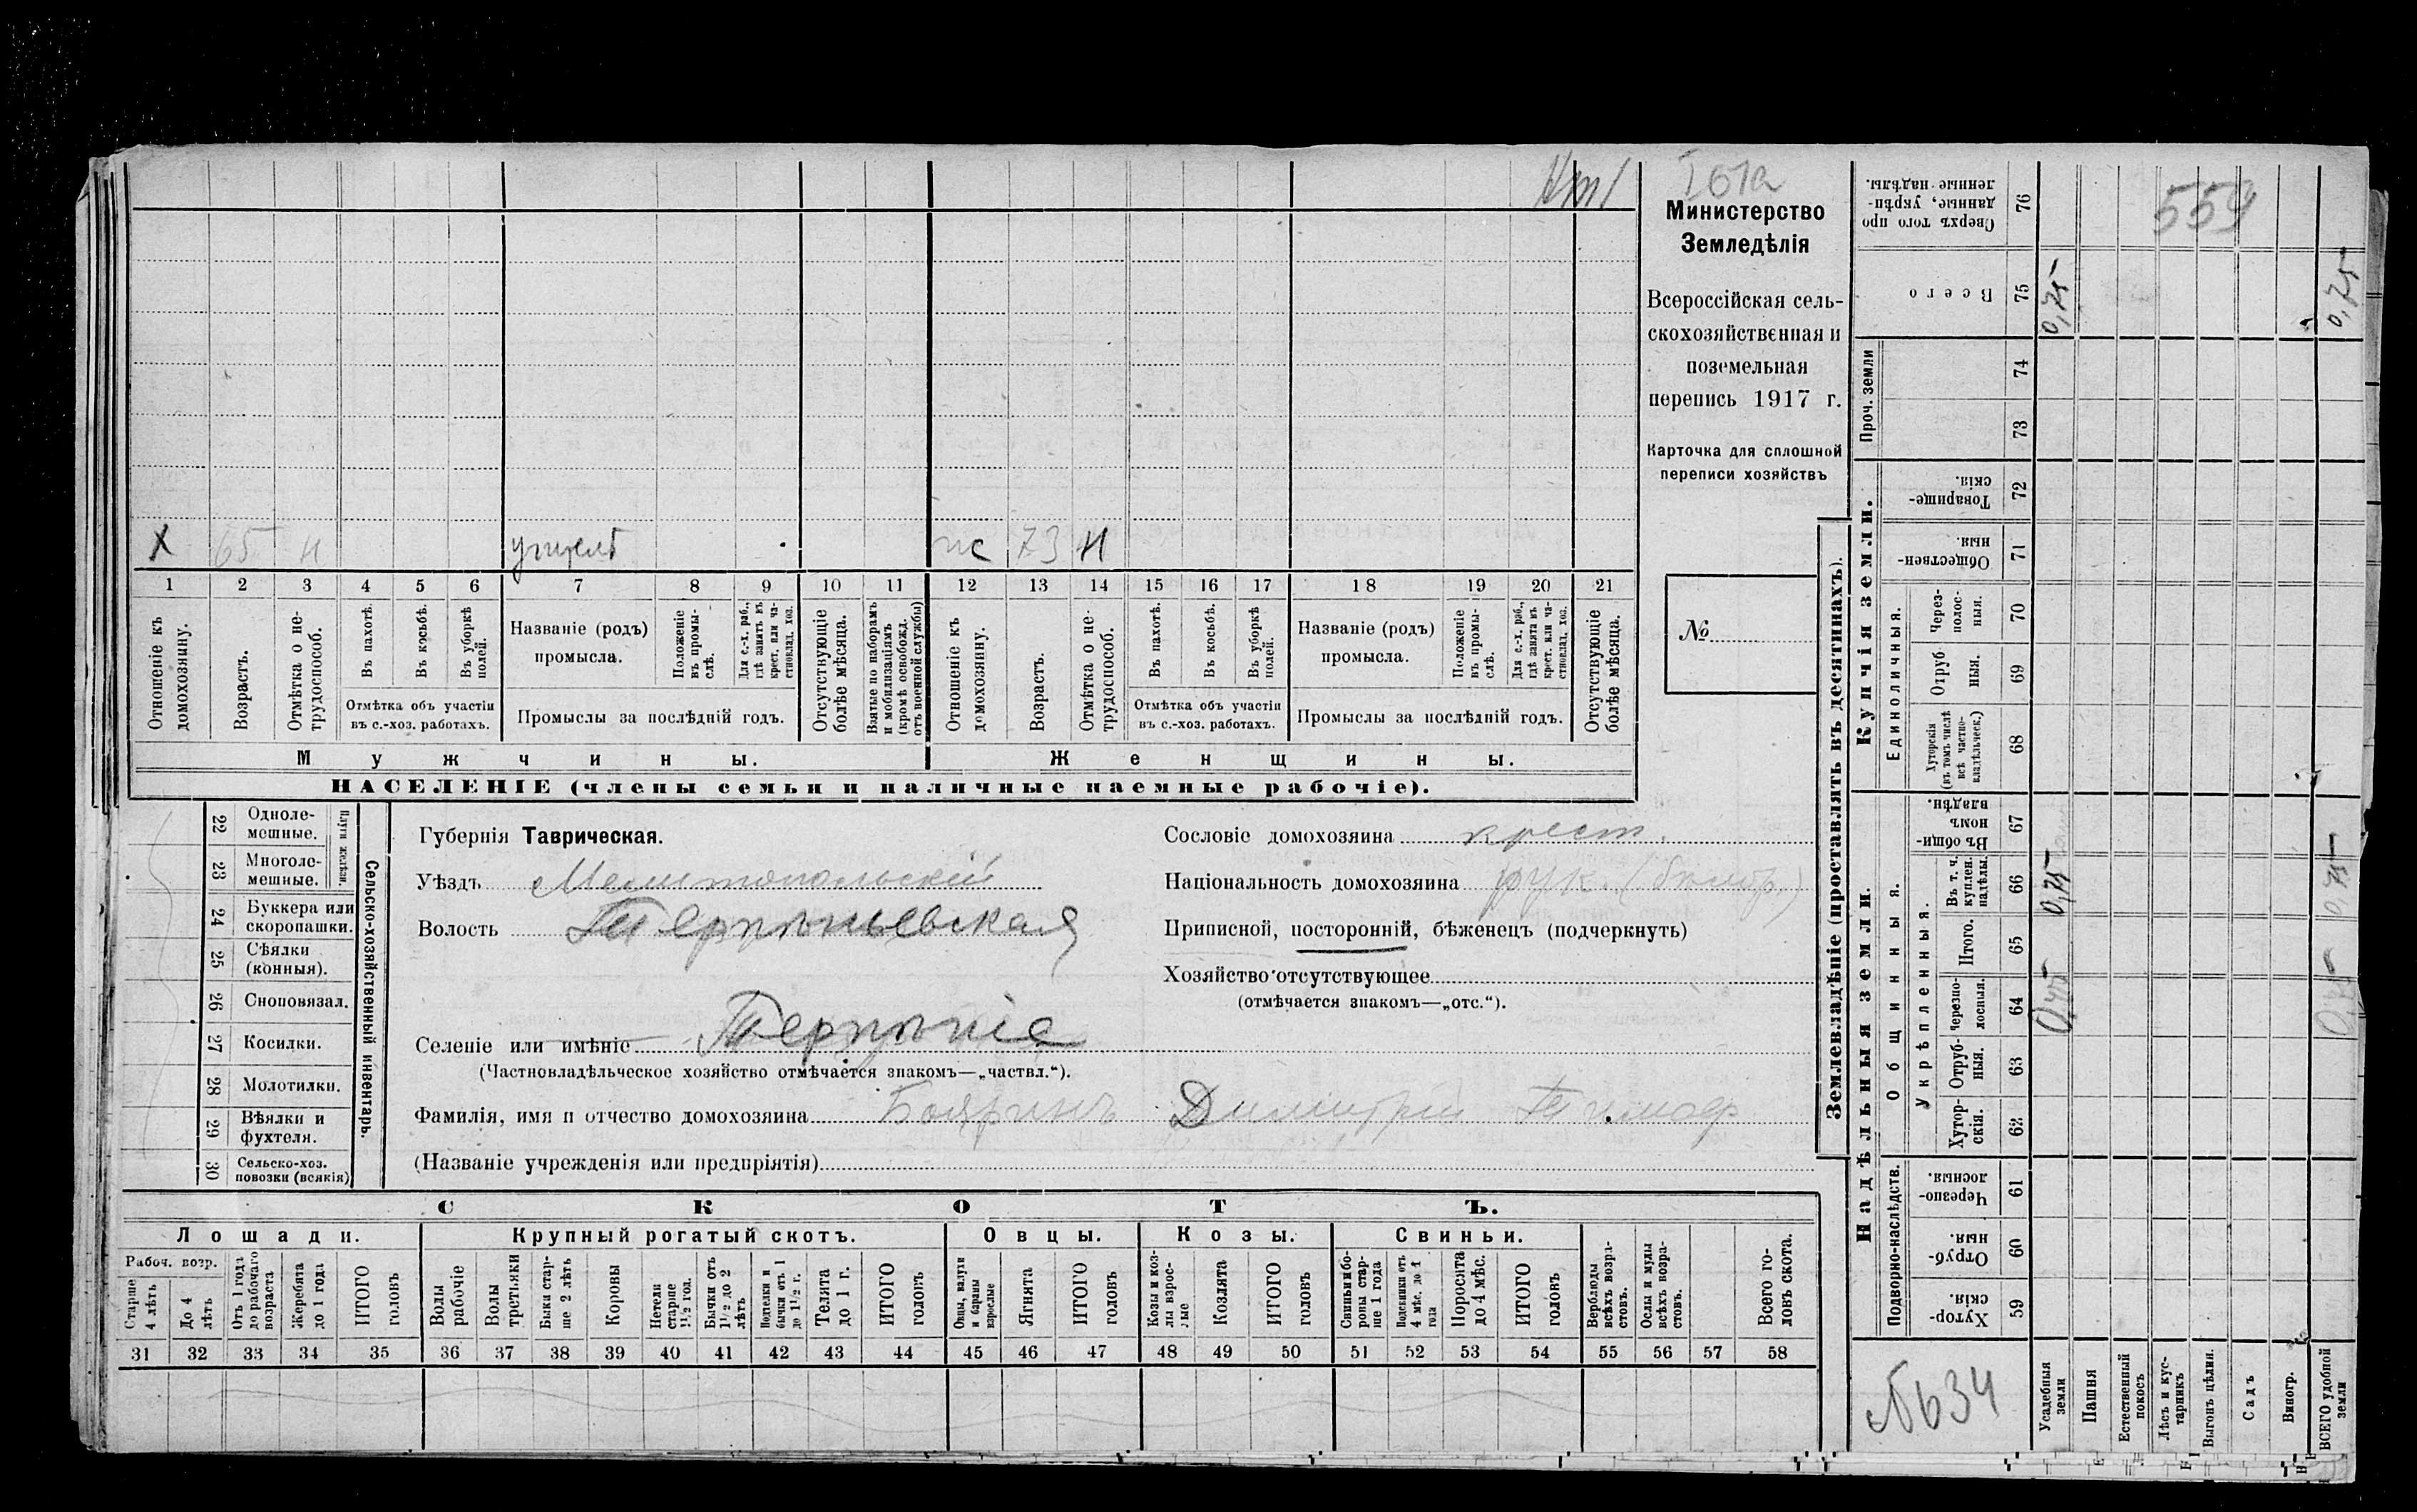 559
Министерство
Земледѣлія
Всероссійская сель-
скохозяйственная и
поземельная
перепись 1917 г.
Карточка для сплошной
переписи хозяйствъ
№
X 65 н учитель
73 н
1 2 3 4 5 6 7 8 9 10 11 12 13 14 15 16 17 18 19 20 21
Отношеніе къ домохозяину.
Возрастъ.
Отмѣтка о не-трудоспособ.
Въ пахотѣ.
Въ косьбѣ.
Въ уборкѣ полей.
Отмѣтка объ участіи
въ с.-хоз. работахъ.
Названіе (родъ)
промысла.
Положеніе въ промы-слѣ.
Для с.-х. раб., гдѣ занятъ въ крест. или ча-стновлад. хоз.
Промыслы за послѣдній годъ.
Отсутствующіе болѣе мѣсяца.
Взятые по наборамъ и мобилизаціямъ (кромѣ освобожд. отъ военной службы)
Отношеніе къ домохозяину.
Возрастъ.
Отмѣтка о не-трудоспособ.
Въ пахотѣ.
Въ косьбѣ.
Въ уборкѣ полей.
Отмѣтка объ участіи
въ с.-хоз. работахъ.
Названіе (родъ)
промысла.
Положеніе въ промы-слѣ.
Для с.-х. раб., гдѣ занята въ крест. или ча-стновлад. хоз.
Промыслы за послѣдній годъ.
Отсутствующіе болѣе мѣсяца.
Мужчины.
Женщины.
НАСЕЛЕНІЕ (члены семьи и наличные наемные рабочіе).
22 Одноле-мешные.
23 Многоле-мешные.
Плуги желѣзн.
24 Буккера или скоропашки.
25 Сѣялки (конныя).
26 Сноповязал.
27 Косилки.
28 Молотилки.
29 Вѣялки и фухтеля.
30 Сельско-хоз. повозки (всякія)
Сельско-хозяйственный инвентарь.
Губернія Таврическая.
Уѣздъ Мелитопольскій
Волость Терпѣньевская
Селеніе или имѣніе Терпѣніе
(Частновладѣльческое хозяйство отмѣчается знакомъ—„частвл.“).
Фамилія, имя и отчество домохозяина Бояринъ Димитрій Тимоф
(Названіе учрежденія или предпріятія)
Сословіе домохозяина крест.
Національность домохозяина
Приписной, посторонній, бѣженецъ (подчеркнуть)
Хозяйство отсутствующее
(отмѣчается знакомъ—„отс.“).
СКОТЪ.
Лошади.
Крупный рогатый скотъ.
Овцы.
Козы.
Свиньи.
Рабоч. возр.
Старше 4 лѣтъ
До 4 лѣтъ
Отъ 1 года до рабочаго возраста
Жеребята до 1 года
ИТОГО головъ
Волы рабочіе
Волы третьяки
Быки стар-ше 2 лѣтъ
Коровы
Нетели старше 1½ год.
Бычки отъ 1½ до 2 лѣтъ
Подтелки и бычки отъ 1 до 1½ г.
Телята до 1 г.
ИТОГО головъ
Овцы, валухи и бараны взрослые
Ягнята
ИТОГО головъ
Козы и коз-лы взрос-лые
Козлята
ИТОГО головъ
Свиньи и бо-ровы стар-ше 1 года
Подсвинки отъ 4 мѣс. до 1 года
Поросята до 4 мѣс.
ИТОГО головъ
Верблюды всѣхъ возра-стовъ.
Ослы и мулы всѣхъ возра-стовъ.
Всего го-ловъ скота.
31 32 33 34 35 36 37 38 39 40 41 42 43 44 45 46 47 48 49 50 51 52 53 54 55 56 57 58
Землевладѣніе (проставлять въ десятинахъ).
Надѣльныя земли.
Купчія земли.
Проч. земли
Подворно-наслѣдств.
Общинныя.
Укрѣпленныя.
Единоличныя.
76 Сверхъ того про данные, укрѣп-ленные надѣлы.
75 Всего 0,75 0,75
74
73
72 Товарище-скія.
71 Обществен-ныя.
70 Через-полос-ныя.
69 Отруб ныя.
68 Хуторскія (въ томъ числѣ всѣ частно-владѣльческ.)
67 Въ общи-номъ владѣн.
66 Въ т. ч. куплен. надѣлы. 0,75 0,75
65 Итого.
64 Черезпо-лосныя. 0,75 0,75
63 Отруб-ныя.
62 Хутор-скія.
61 Черезпо-лосныя.
60 Отруб-ныя.
59 Хутор-скія.
№ 634
Усадебныя земли
Пашня
Естественный покосъ
Лѣсъ и кус-тарникъ
Выгонъ цѣлин.
Садъ
Виногр.
ВСЕГО удобной земли